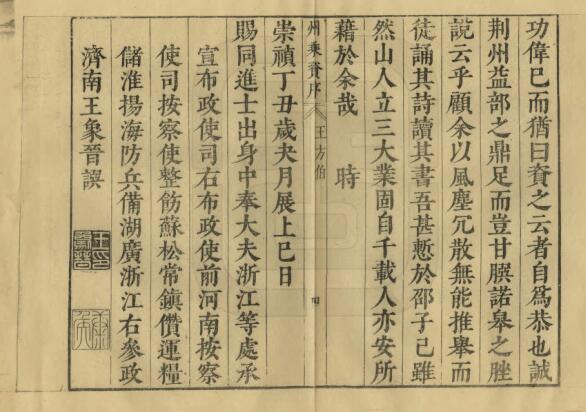 功偉已而猶曰資之云者自爲恭也誠
荆州益部之鼎足而豈甘臊諾皋之脞
說云乎顧余以風塵冗散無能推舉而
徒誦其詩讀其書吾甚慙於邵子已雖
然山人立三大業固自千載人亦安所
藉於余哉 時
州乘資序 王方伯 四
崇禎丁丑歲夬月展上巳日
賜同進士出身中奉大夫浙江等處承
宣布政使司右布政使前河南按察
使司按察使整飭蘇松常鎭儹運糧
儲淮揚海防兵備湖廣浙江右參政
濟南王象晉譔